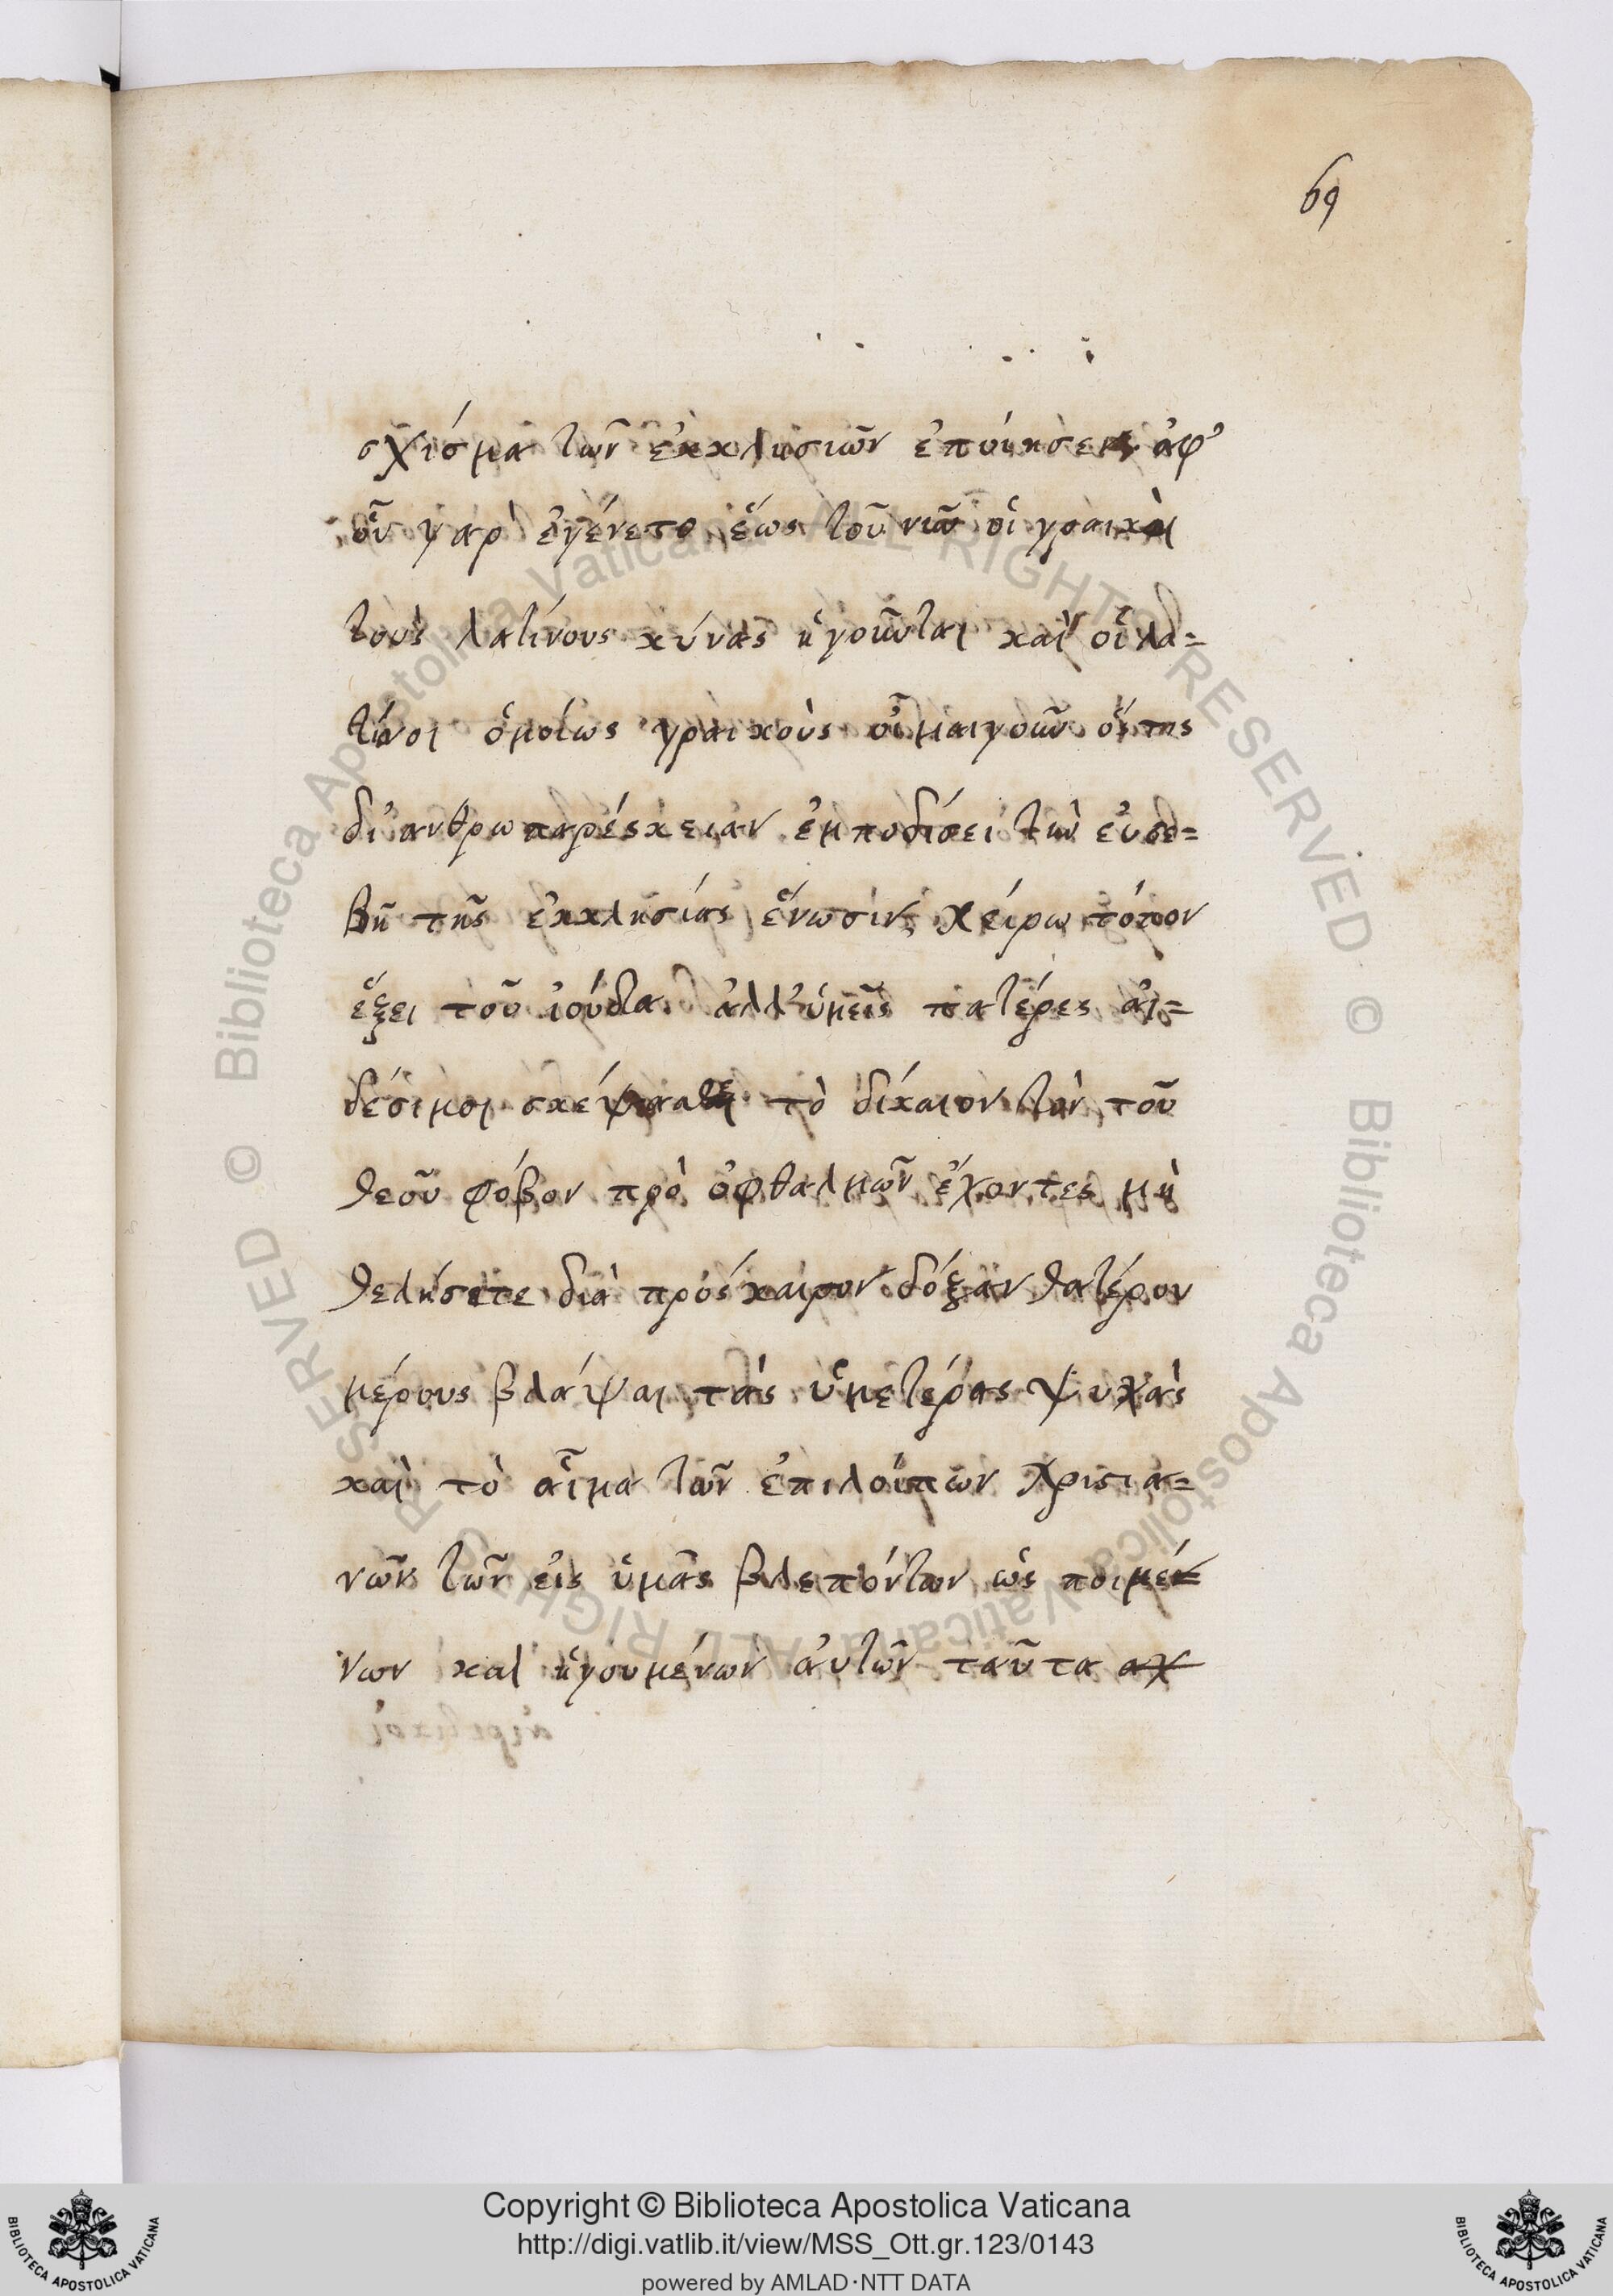 69
σχίσμα τῶν ἐκκλησιῶν ἐποίησεν ἀφ᾽
οὗ γὰρ ἐγένετο ἕως τοῦ νῦν οἱ γραικοὶ
τοὺς λατίνους κύνας ἡγοῦνται καὶ οἱ λα=
τῖνοι ὁμοίως γραικοὺς οἶμαι γοῦν ὅστις
δι᾽ ἀνθρωπαρέσκειαν ἐμποδίσει τὴν εὐσε=
βῆ τῆς ἐκκλησίας ἕνωσιν, χείρω τόπον
ἕξει τοῦ ἰούδα. ἀλλ᾽ ὑμεῖς πατέρες αἰ=
δέσιμοι σκέψασθε τὸ δίκαιον τὸν τοῦ
θεοῦ φόβον πρὸ ὀφθαλμῶν ἔχοντες μὴ
θελήσετε διὰ πρόσκαιρον δόξαν θατέρου
μέρους βλάψαι τὰς ὑμετέρας ψυχὰς
καὶ τὸ αἷμα τῶν ἐπιλοίπων χριστια=
νῶν τῶν εἰς ὑμᾶς βλεπόντων ὡς ποιμέ
νων καὶ ἡγουμένων αὐτῶν ταῦτα
Copyright © Biblioteca Apostolica Vaticana
http://digi.vatlib.it/view/MSS_Ott.gr.123/0143
powered by AMLAD·NTT DATA
BIBLIOTECA APOSTOLICA VATICANA
BIBLIOTECA APOSTOLICA VATICANA
© Biblioteca Apostolica Vaticana ALL RIGHTS RESERVED
© Biblioteca Apostolica Vaticana ALL RIGHTS RESERVED